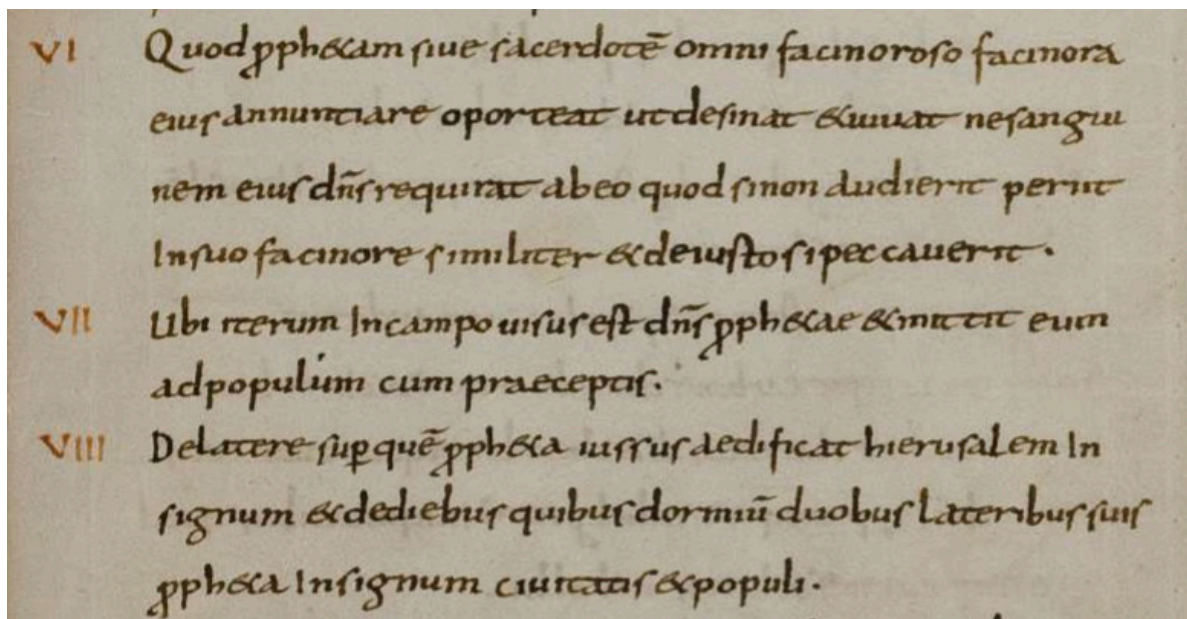 VI Quod ꝓph&am siue sacerdotē omni facinoroso facinora
eius annuntiare oporteat ut desinat &uiuat ne sangui
nem eius dn̄s requirat ab eo quod si non audierit periit
In suo facinore similiter & de iusto si peccauerit ·
VII Ubi iterum In campo uisus est dn̄s ꝓph&ae & mittit eum
ad populum cum praeceptis ·
VIII De latere suꝑ quē ꝓph&a iussus aedificat hierusalem In
signum & de diebus quibus dormiū duobus lateribus suis
ꝓph&a In signum ciuitatis & populi ·